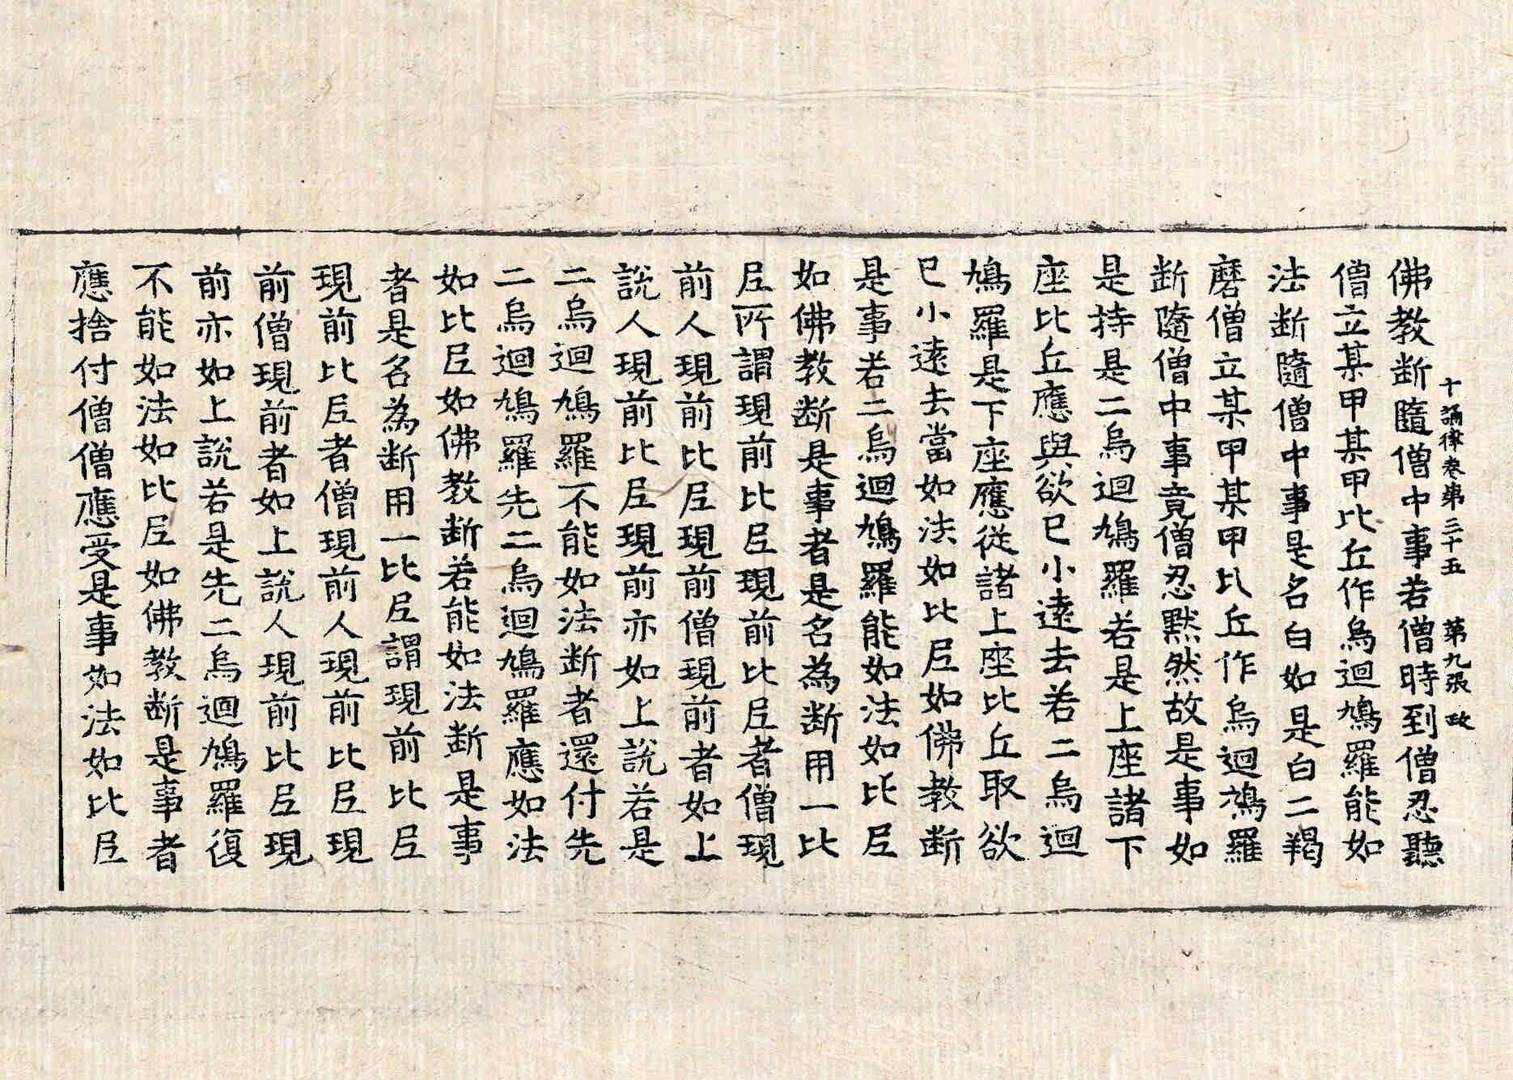 十誦律卷第三十五　第九張　政
佛教斷隨僧中事若僧時到僧忍聽
僧立某甲某甲比丘作烏迴鳩羅能如
法断隨僧中事是名白如是白二羯
磨僧立某甲某甲比丘作烏迴鳩羅
断隨僧中事竟僧忍默然故是事如
是持是二烏迴鳩羅若是上座諸下
座比丘應與欲已小遠去若二烏迴
鳩羅是下座應從諸上座比丘取欲
已小遠去當如法如比尼如佛教断
是事若二烏迴鳩羅能如法如比尼
如佛教断是事者是名為断用一比
尼所謂現前比尼現前比尼者僧現
前人現前比尼現前僧現前者如上
說人現前比尼現前亦如上說若是
二烏迴鳩羅不能如法断者還付先
二烏迴鳩羅先二烏迴鳩羅應如法
如比尼如佛教断若能如法断是事
者是名為断用一比尼謂現前比尼
現前比尼者僧現前人現前比尼現
前僧現前者如上說人現前比尼現
前亦如上說若是先二烏迴鳩羅復
不能如法如比尼如佛教断是事者
應捨付僧僧應受是事如法如比尼